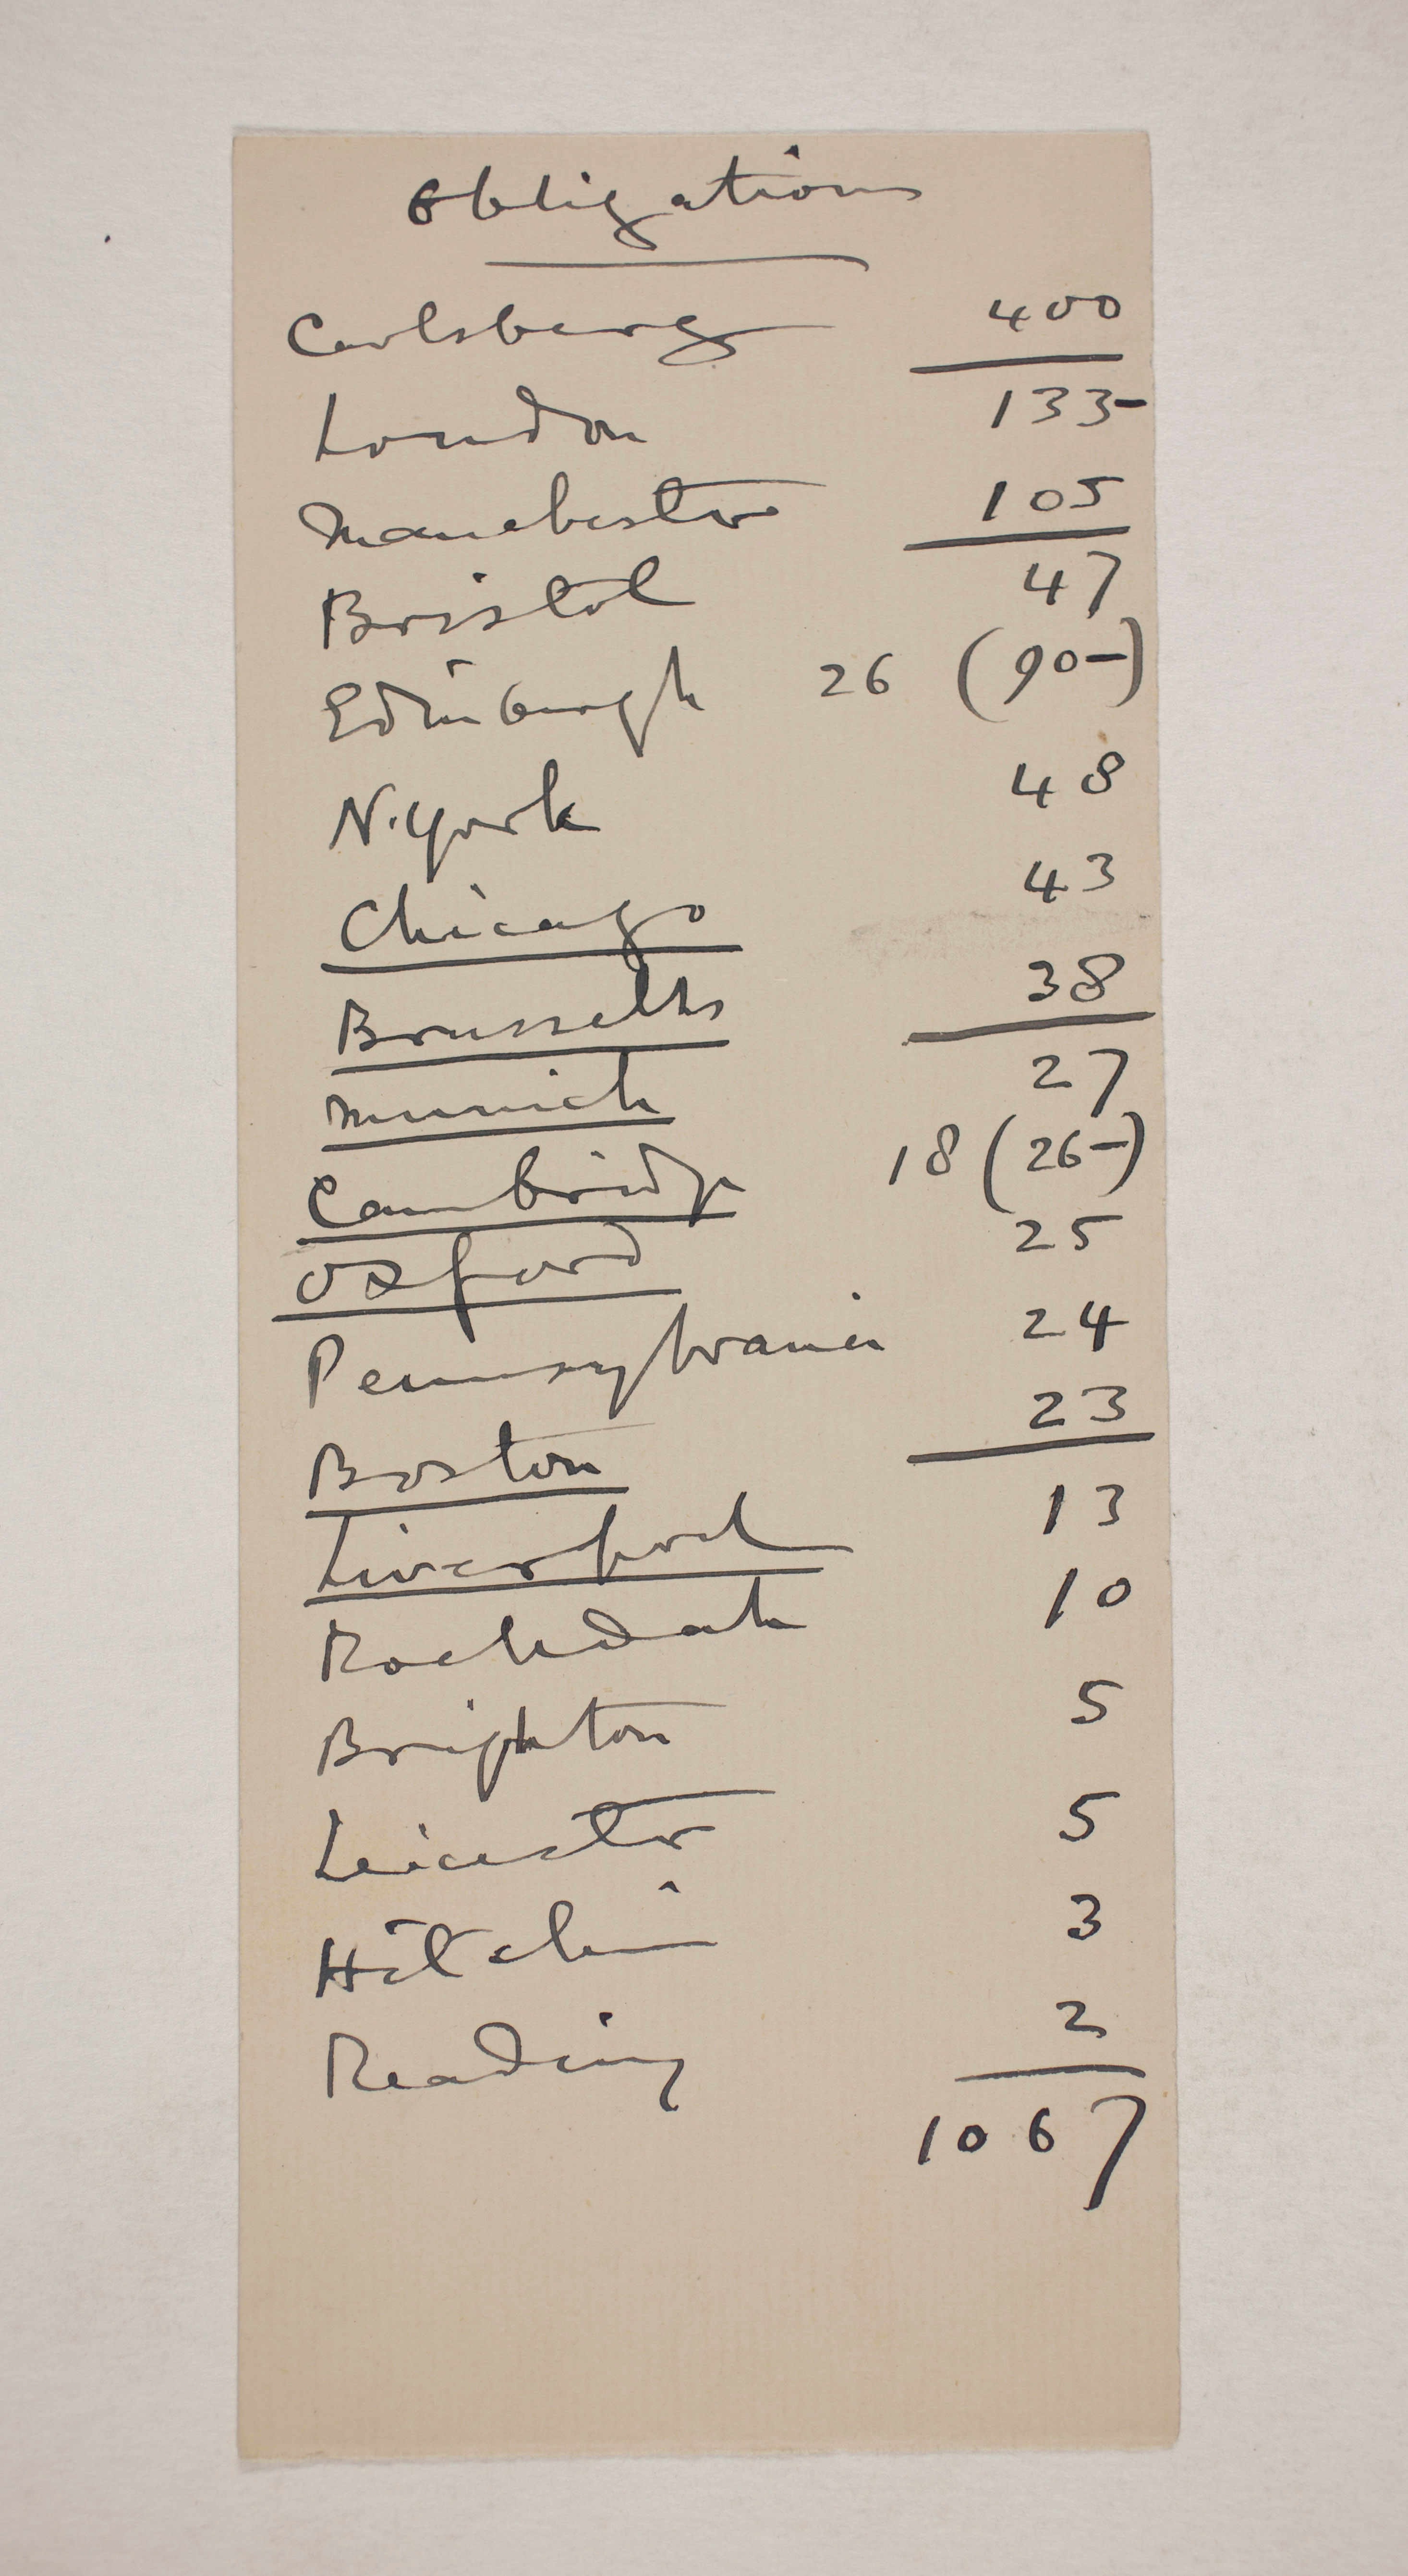 Obligations
Carlsberg 400
London 133-
Manchester 105
Bristol 47
Edinburgh 26 (90-)
N. York 48
Chicago 43
Brussells 38
Munich 27
Cambridge 18 (26-)
Oxford 25
Pennsylvania 24
Boston 23
Liverpool 13
Rochdale 10
Brighton 5
Leicester 5
Hitchin 3
Reading 2
1067